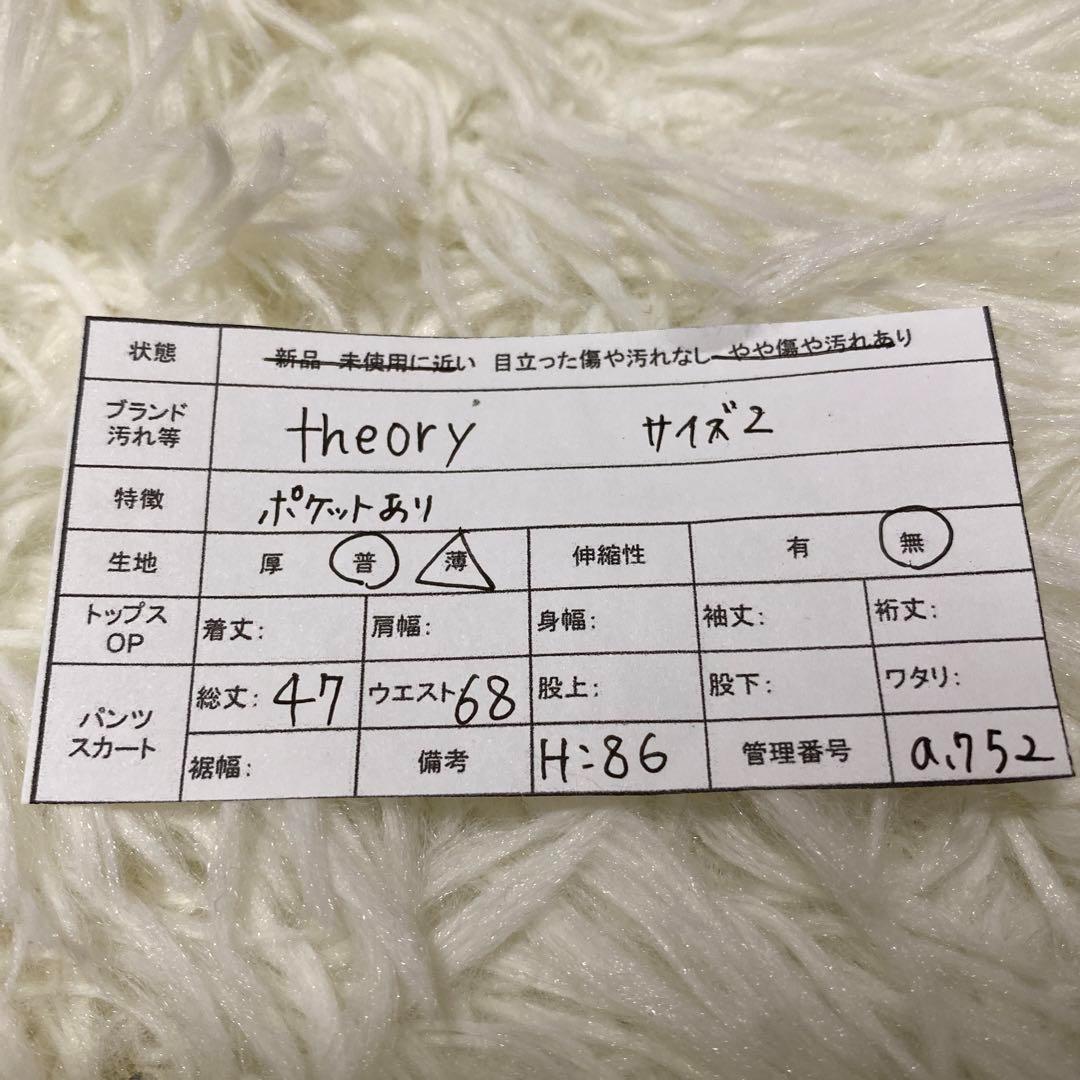 状態 新品 未使用に近い 目立った傷や汚れなし やや傷や汚れあり
ブランド
汚れ等 theory サイズ2
特徴 ポケットあり
生地 厚 普 薄 伸縮性 有 無
トップス
OP 着丈: 肩幅: 身幅: 袖丈: 裄丈:
パンツ
スカート 総丈: 47 ウエスト68 股上: 股下: ワタリ:
裾幅: 備考 H:86 管理番号 a.752